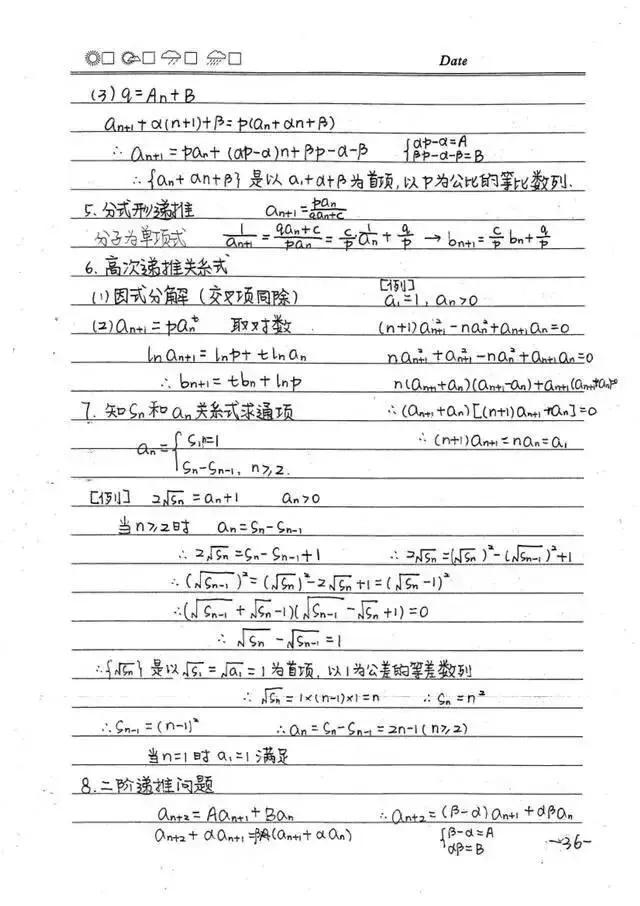 Date
(3) q=An+B
aₙ₊₁+α(n+1)+β=p(aₙ+αn+β)
∴ aₙ₊₁=paₙ+(αp-α)n+βp-α-β {αp-α=A βp-α-β=B
∴{aₙ+αn+β} 是以 a₁+α+β 为首项,以 p 为公比的等比数列.
5. 分式形递推 aₙ₊₁=paₙ/(qaₙ+c)
分子为单项式 1/aₙ₊₁=(qaₙ+c)/(paₙ)=c/p·1/aₙ+q/p → bₙ₊₁=c/p bₙ+q/p
6. 高次递推关系式
[例]
(1) 因式分解 (交叉项同除) a₁=1, aₙ>0
(2) aₙ₊₁=paₙᵗ 取对数 (n+1)aₙ₊₁²-naₙ²+aₙ₊₁aₙ=0
lnaₙ₊₁=lnp+tlnaₙ naₙ₊₁²+aₙ₊₁²-naₙ²+aₙ₊₁aₙ=0
∴ bₙ₊₁=tbₙ+lnp n(aₙ₊₁+aₙ)(aₙ₊₁-aₙ)+aₙ₊₁(aₙ₊₁+aₙ)=0
7. 知Sₙ和aₙ关系式求通项 ∴(aₙ₊₁+aₙ)[(n+1)aₙ₊₁-naₙ]=0
∴(n+1)aₙ₊₁=naₙ=a₁
aₙ={S₁, n=1
Sₙ-Sₙ₋₁, n≥2.
[例] 2√Sₙ=aₙ+1 aₙ>0
当n≥2时 aₙ=Sₙ-Sₙ₋₁
∴ 2√Sₙ=Sₙ-Sₙ₋₁+1 ∴ 2√Sₙ=(√Sₙ)²-(√Sₙ₋₁)²+1
∴(√Sₙ₋₁)²=(√Sₙ)²-2√Sₙ+1=(√Sₙ-1)²
∴(√Sₙ₋₁+√Sₙ-1)(√Sₙ₋₁-√Sₙ+1)=0
∴ √Sₙ-√Sₙ₋₁=1
∴{√Sₙ} 是以√S₁=√a₁=1为首项,以1为公差的等差数列
∴√Sₙ=1×(n-1)×1=n ∴Sₙ=n²
∴Sₙ₋₁=(n-1)² ∴aₙ=Sₙ-Sₙ₋₁=2n-1(n≥2)
当n=1时 a₁=1满足
8. 二阶递推问题
aₙ₊₂=Aaₙ₊₁+Baₙ ∴aₙ₊₂=(β-α)aₙ₊₁+αβaₙ
aₙ₊₂+αaₙ₊₁=β(aₙ₊₁+αaₙ) {β-α=A αβ=B
-36-